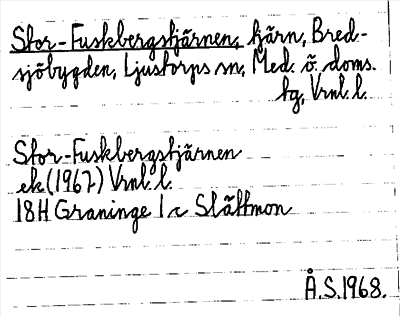 Stor-Fuskbergstjärnen, tjärn, Bred-
sjöbygden, Ljustorps sn, Med. ö. doms.
tg, Vrnl. l.
Stor-Fuskbergstjärnen
ek (1967) Vrnl. l.
18H Graninge 1 c Slättmon
Å.S. 1968.